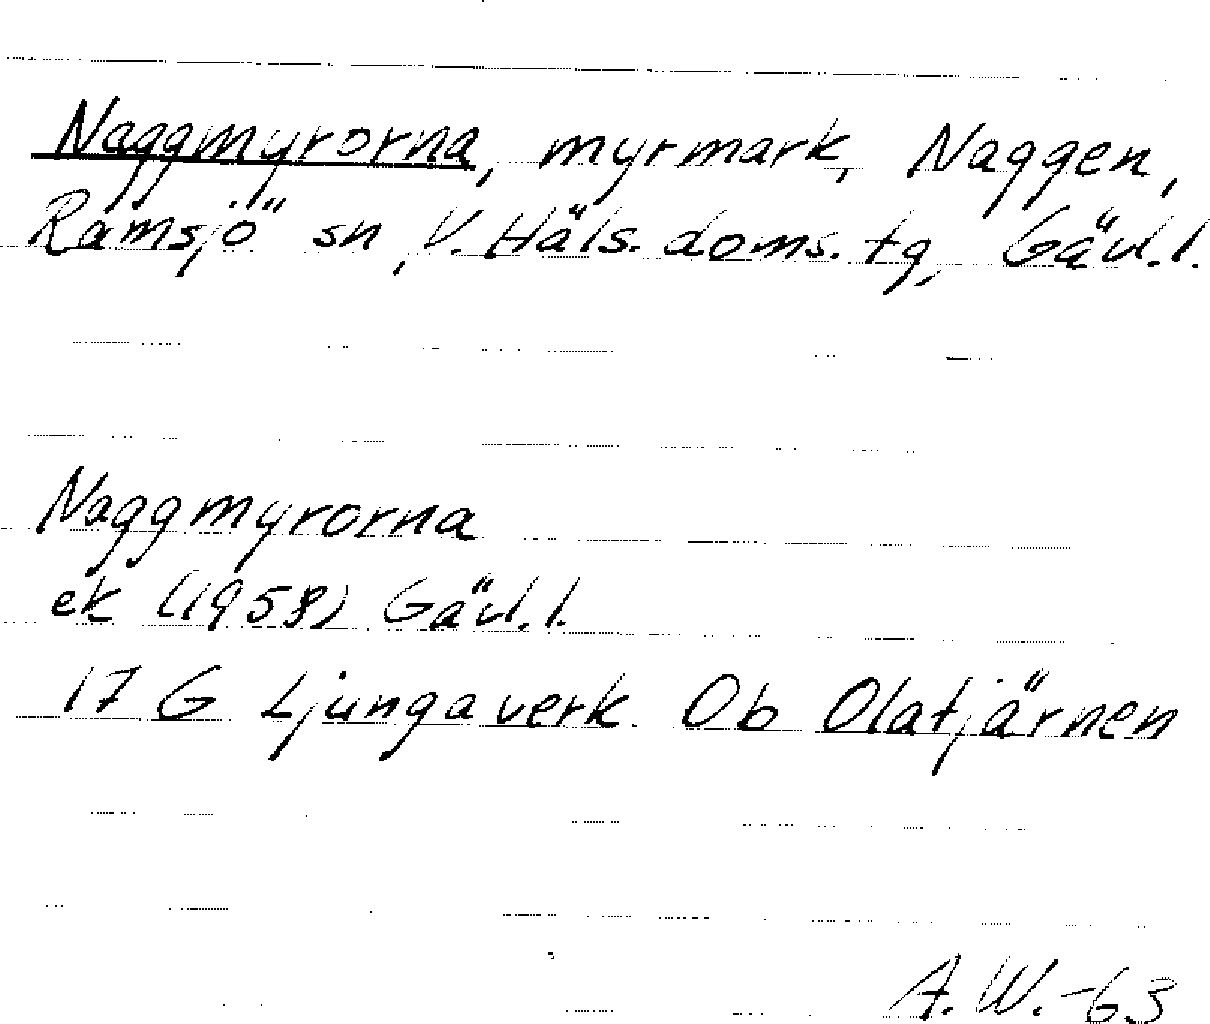 Naggmyrorna, myrmark, Naggen,
Ramsjö sn, V. Häls. doms. tg, Gävl.l.
Naggmyrorna
ek (1958) Gävl.l.
17 G Ljungaverk Ob Olatjärnen
A.W.-63